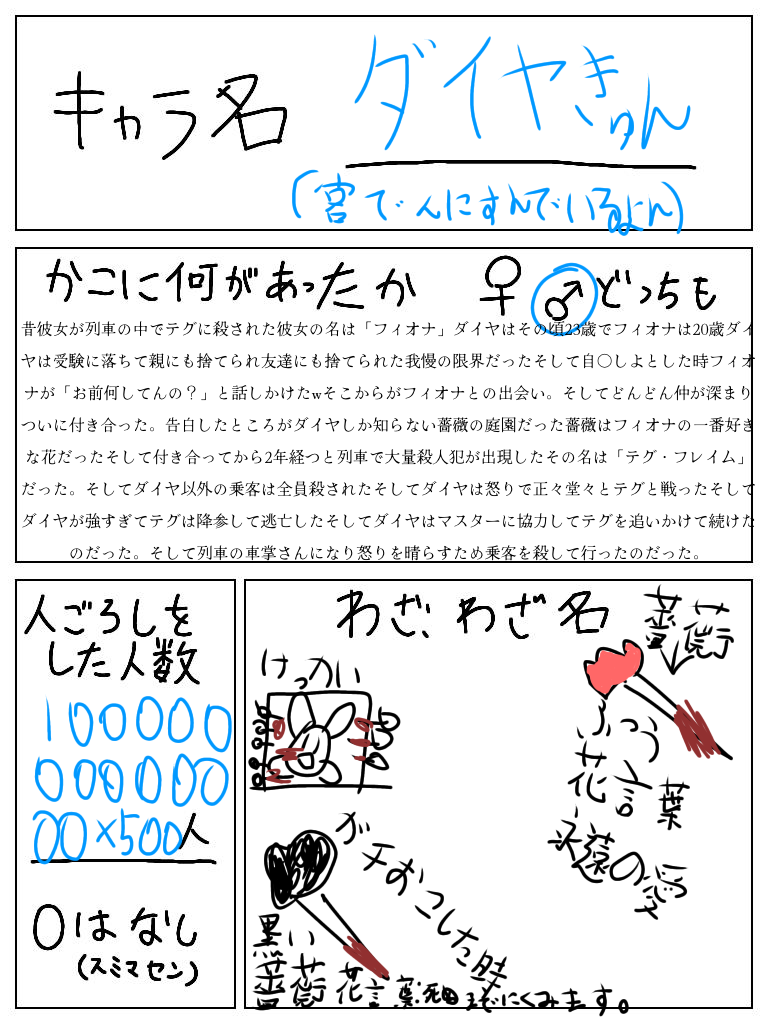 キャラ名
ダイヤきゅん
(宮でんにすんでいるよん)
かこに何があったか ♀ ♂ どっちも
昔彼女が列車の中でテグに殺された彼女の名は「フィオナ」ダイヤはその頃23歳でフィオナは20歳ダイ
ヤは受験に落ちて親にも捨てられ友達にも捨てられた我慢の限界だったそして自〇しよとした時フィオ
ナが「お前何してんの？」と話しかけたwそこからがフィオナとの出会い。そしてどんどん仲が深まり
ついに付き合った。告白したところがダイヤしか知らない薔薇の庭園だった薔薇はフィオナの一番好き
な花だったそして付き合ってから2年経つと列車で大量殺人犯が出現したその名は「テグ・フレイム」
だった。そしてダイヤ以外の乗客は全員殺されたそしてダイヤは怒りで正々堂々とテグと戦ったそして
ダイヤが強すぎてテグは降参して逃亡したそしてダイヤはマスターに協力してテグを追いかけて続けた
のだった。そして列車の車掌さんになり怒りを晴らすため乗客を殺して行ったのだった。
人ごろしを
した人数
100000
000000
00×500人
0はなし
(スミマセン)
わざ、わざ名
けっかい
薔薇
ふつう
花言葉
永遠の愛
ガチおこした時
黒い
薔薇 花言葉死ぬまでにくみます。